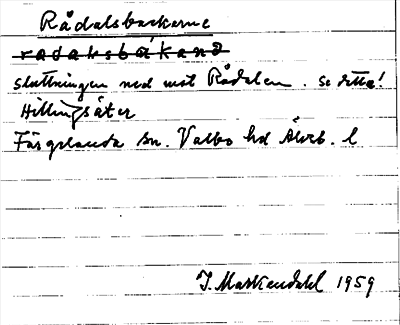 Rådalsbackarne
radalsbakana
sluttningen ned mot Rådalen. Se detta!
Hillingsäter
Färgelanda sn. Valbo hd Älvsb. l
J. Markendahl 1959